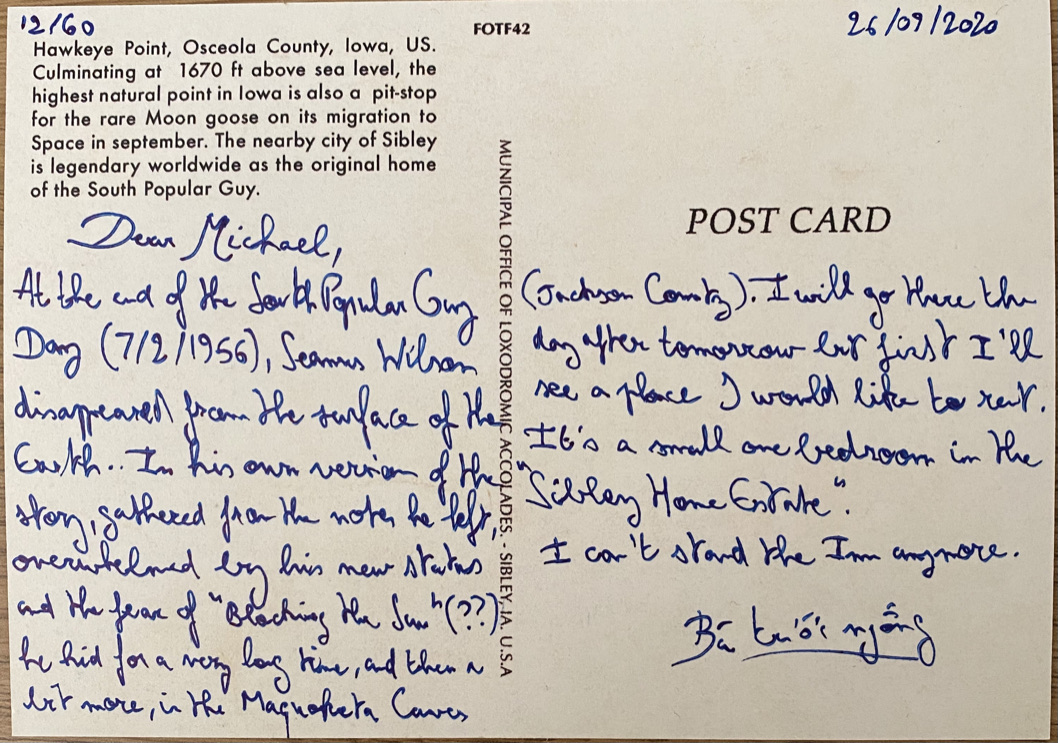 12/60
26/09/2020
FOTF42
Hawkeye Point, Osceola County, Iowa, US.
Culminating at 1670 ft above sea level, the
highest natural point in Iowa is also a pit-stop
for the rare Moon goose on its migration to
Space in september. The nearby city of Sibley
is legendary worldwide as the original home
of the South Popular Guy.
MUNICIPAL OFFICE OF LOXODROMIC ACCOLADES. - SIBLEY, IA, U.S.A
POST CARD
Dear Michael,
At the end of the South Popular Guy
Day (7/2/1956), Seamus Wilson
disappeared from the surface of the
Earth.. In his own version of the
story, gathered from the notes he left,
overwhelmed by his new status
and the fear of "Blocking the Sun" (??)
he hid for a very long time, and then a
bit more, in the Maquoketa Caves
(Jackson County). I will go there the
day after tomorrow but first I'll
see a place I would like to rent.
It's a small one bedroom in the
"Sibley Home Estate".
I can't stand the Inn anymore.
Bá tước ngỗng